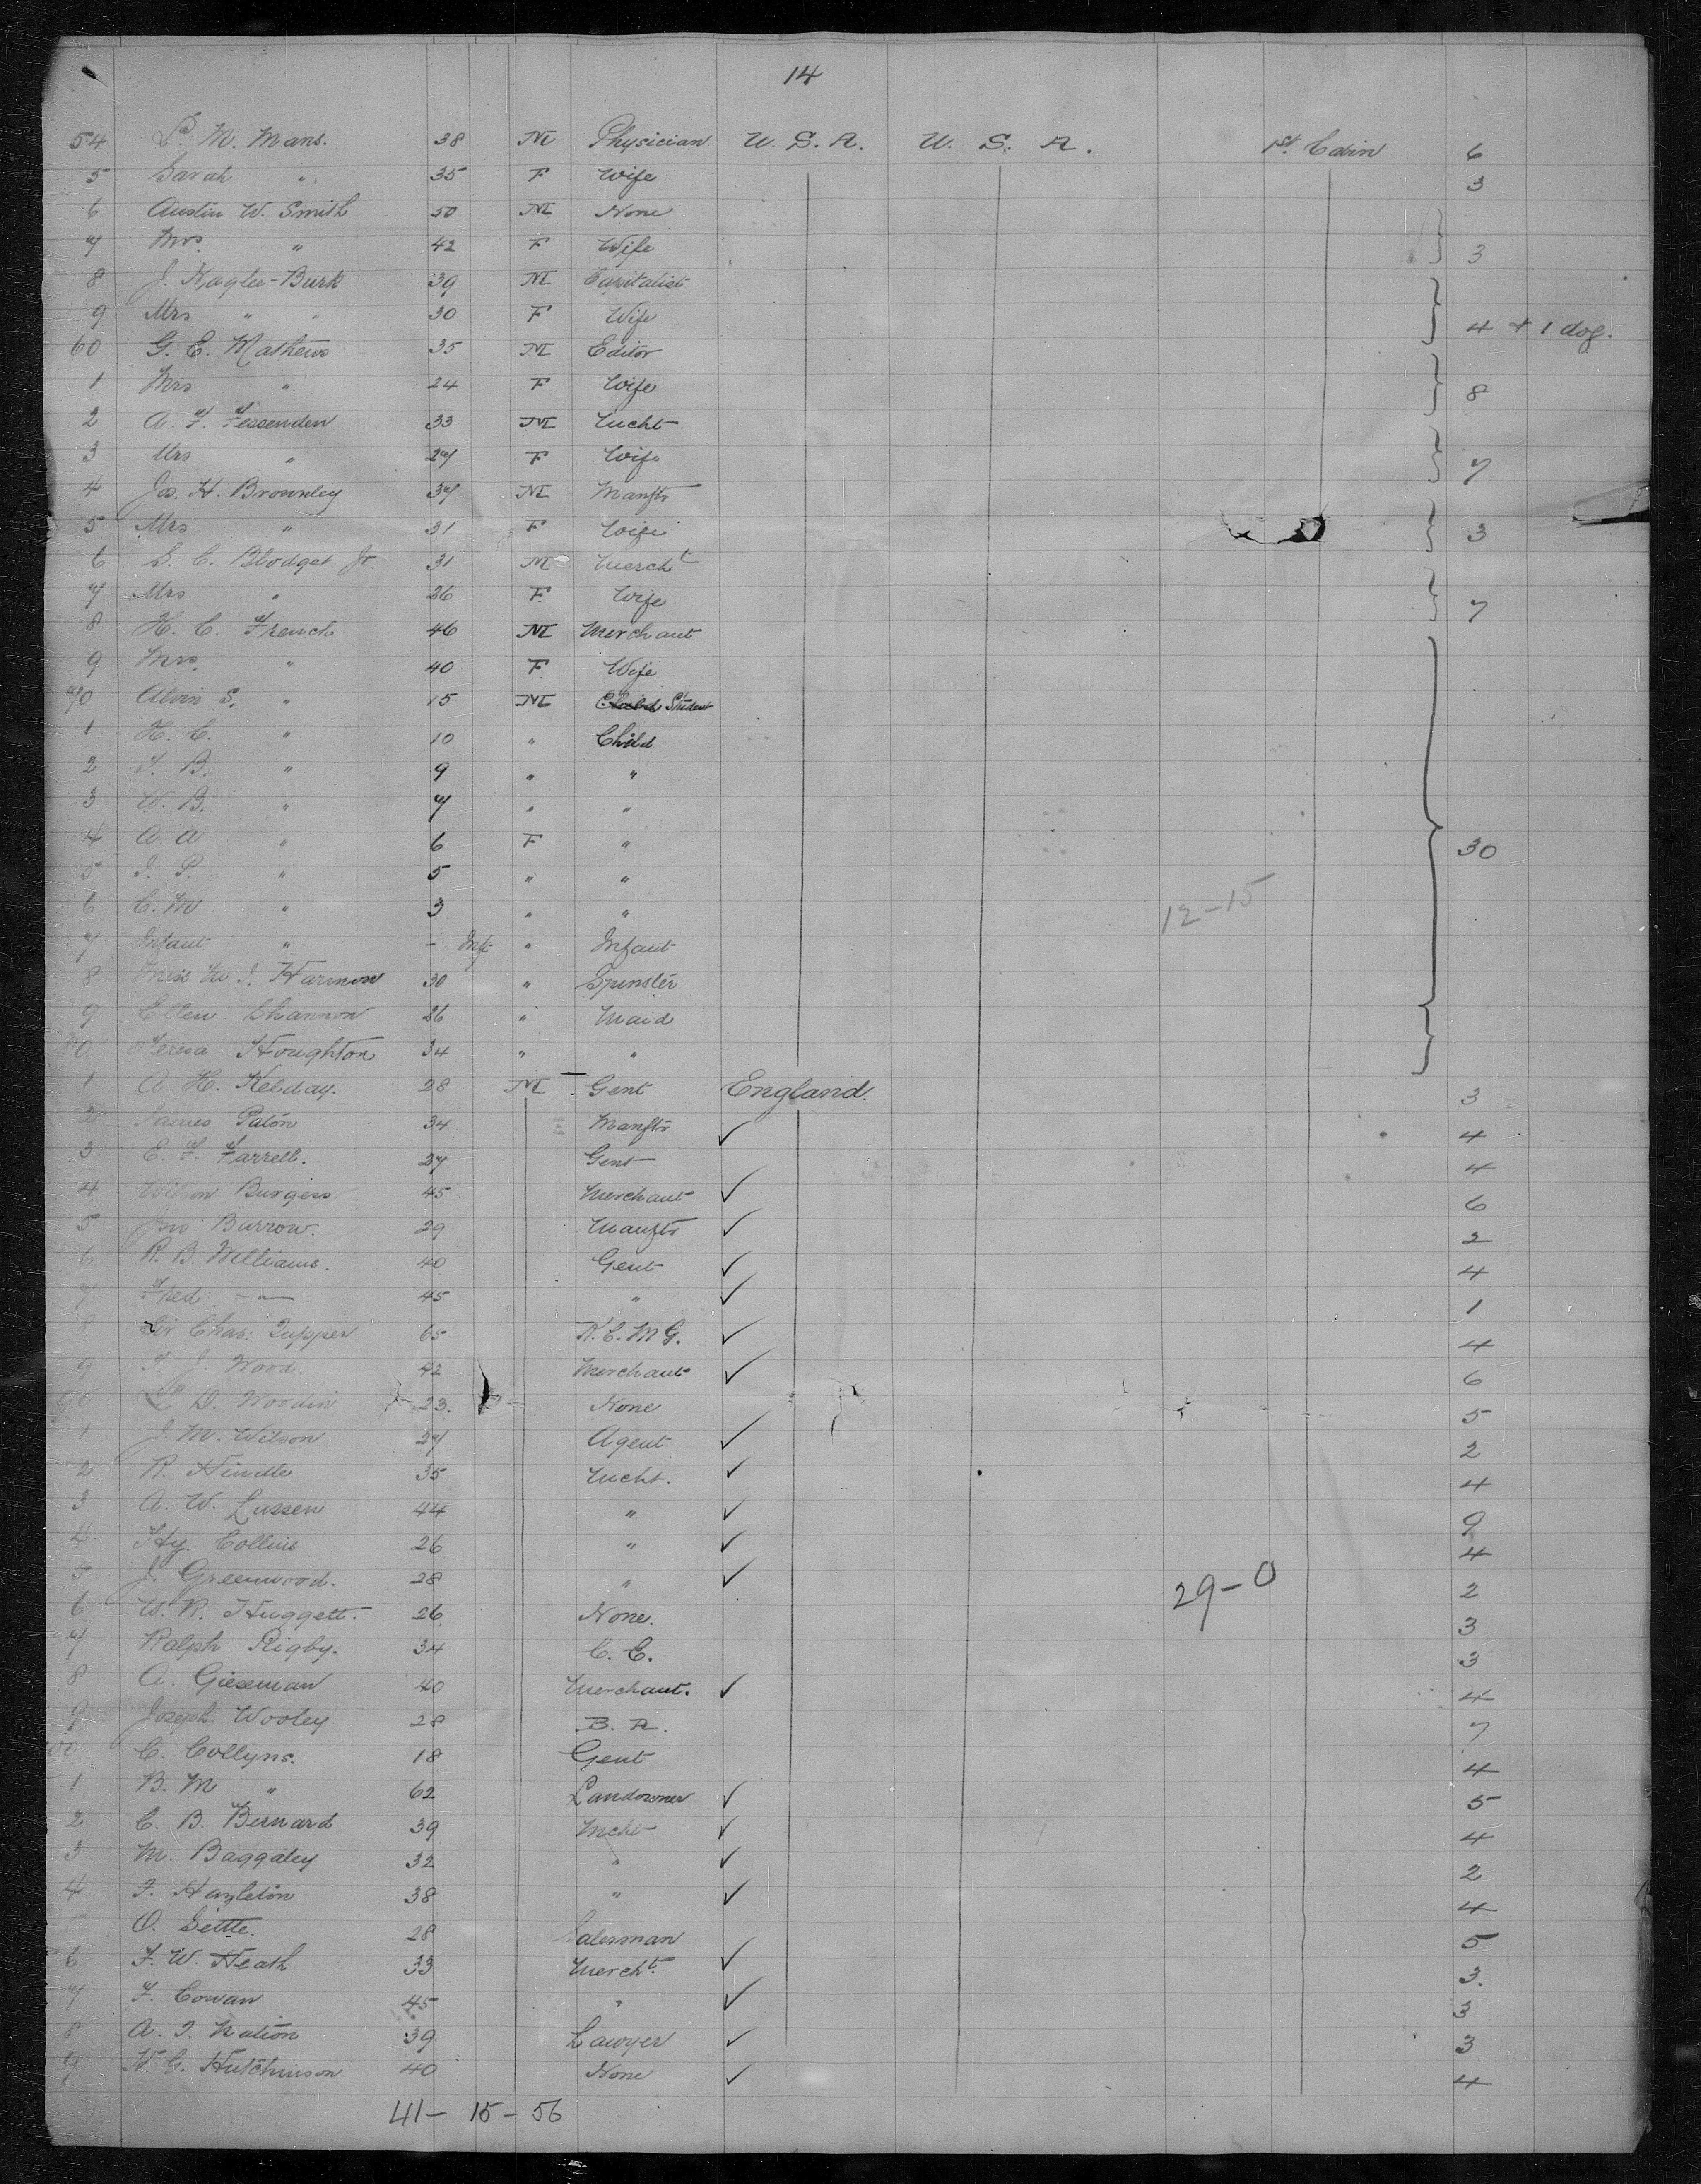 14
54 L. M. Mans. 38 M Physician U. S. A. U. S. A. 1st Cabin 6
5 Sarah " 35 F Wife 3
6 Austin W. Smith 50 M None
7 Mrs. " 42 F Wife 3
8 J. Naglee-Burk 39 M Capitalist
9 Mrs " " 30 F Wife 4 + 1 dog.
60 G. E. Mathews 35 M Editor
1 Mrs " 24 F Wife 8
2 A. F. Fessenden 33 M Mcht
3 Mrs " 27 F Wife 7
4 Jas. H. Brownley 37 M Manftr
5 Mrs " 31 F Wife 3
6 S. C. Blodget Jr 31 M Mercht
7 Mrs " 26 F Wife 7
8 H. C. French 46 M Merchant
9 Mrs. " 40 F Wife
70 Alvin S. " 15 M Child Student
1 H. C. " 10 " Child
2 T. B. " 9 " "
3 W. B. " 7 " "
4 A. A " 6 F " 30
5 I. P. " 5 " "
6 C. M " 3 " " 12-15
7 Infant " - Inf. " Infant
8 Miss M. J. Harmon 30 " Spinster
9 Ellen Shannon 26 " Maid
80 Teresa Houghton 34 " "
1 A. H. Kelday. 28 M Gent England. 3
2 James Paton 34 Manftr ✓ 4
3 E. F. Farrell. 27 Gent 4
4 Wilson Burgess 45 Merchant ✓ 6
5 Jno Burrow. 29 Manftr ✓ 2
6 R. B. Williams. 40 Gent ✓ 4
7 Fred -"- 45 " ✓ 1
8 Sir Chas: Tupper 65 K. C. M G. ✓ 4
9 T. J. Wood. 42 Merchant ✓ 6
90 L. D. Woodin 23. None 5
1 J. M. Wilson 27 Agent ✓ 2
2 R. Hindle 35 Mcht. ✓ 4
3 A. W. Lussen 44 " ✓ 9
4 Hy. Collins 26 " ✓ 4
5 J. Greenwood. 28 " ✓ 29-0 2
6 W. R. Huggett. 26 None. 3
7 Ralph Rigby. 34 C. E. 3
8 A. Gieseman 40 Merchant. ✓ 4
9 Joseph Wooley 28 B. A. 7
00 C. Collyns. 18 Gent 4
1 B. M " 62 Landowner ✓ 5
2 C. B. Bernard 39 Mcht ✓ 4
3 M. Baggaley 32 " ✓ 2
4 F. Hazleton 38 " ✓ 4
O. Settle. 28 Salesman 5
6 F. W. Heath 33 Mercht. ✓ 3.
7 F. Cowan 45 " ✓ 3
8 A. J. Nation 39 Lawyer ✓ 3
9 H. G. Hutchinson 40 None ✓ 4
41- 15- 56